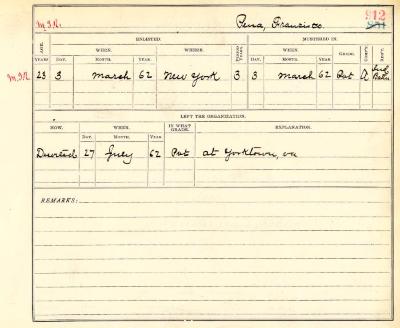 M.I.R. Pena, Francisco. 912
ENLISTED. MUSTERED IN.
AGE. WHEN. WHERE. PERIOD YEARS. WHEN. GRADE. CO'Y. REG'T.
YEARS DAY. MONTH. YEAR. DAY. MONTH. YEAR.
M.I.R. 23 3 March 62 New York 3 3 March 62 Pvt A Ind Batn
LEFT THE ORGANIZATION.
HOW. WHEN. IN WHAT GRADE. EXPLANATION.
DAY. MONTH. YEAR.
Deserted 27 July 62 Pvt at Yorktown, va
REMARKS: